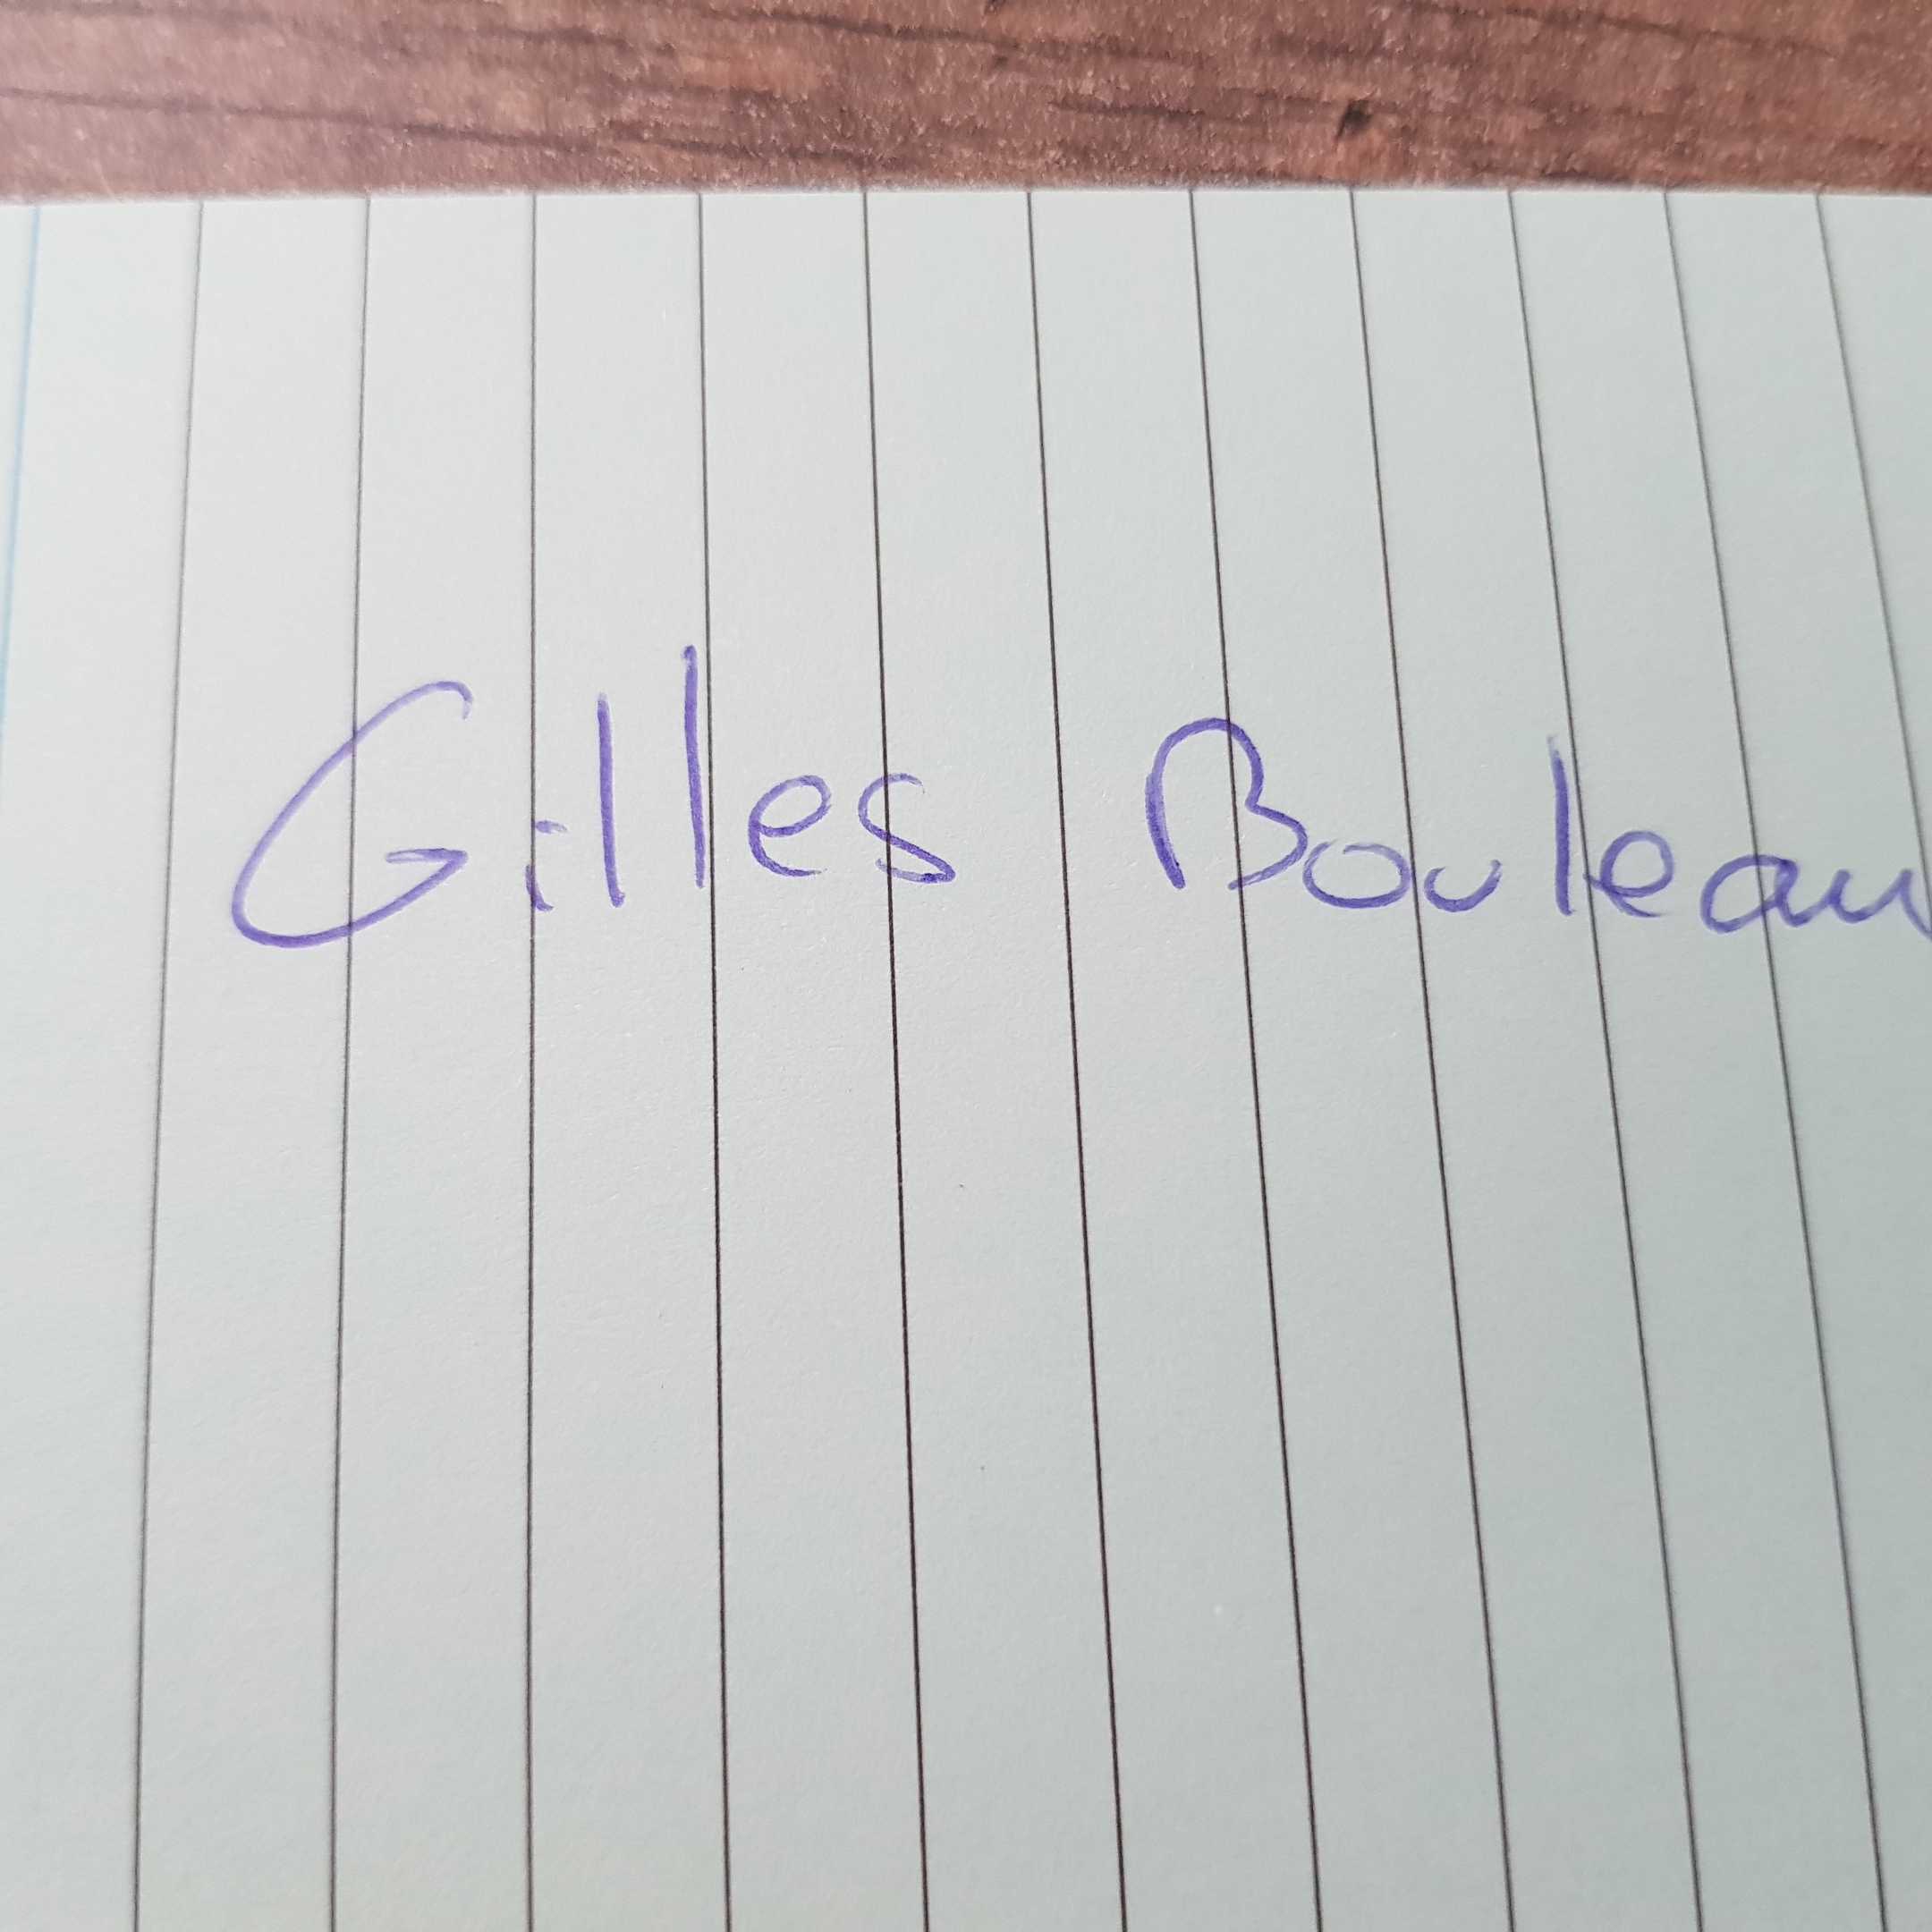 Gilles Bouleau